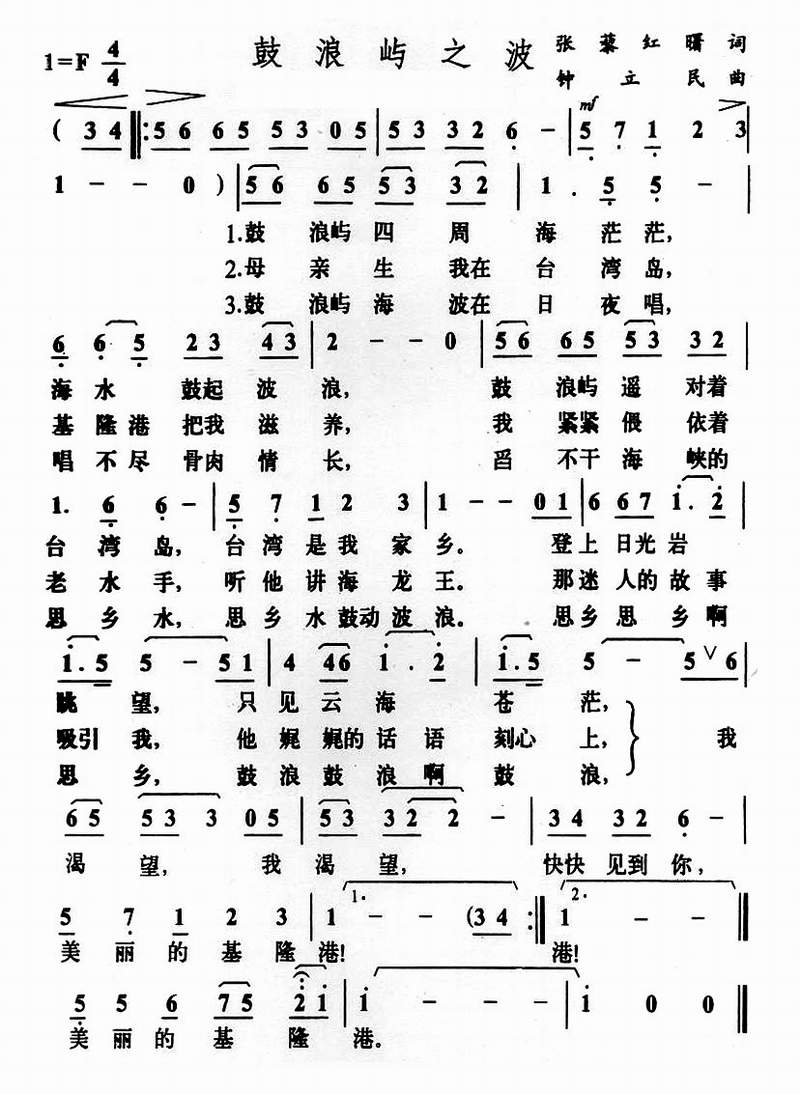 鼓浪屿之波
1=F 4/4
张藜 红曙 词
钟立民 曲
mf
( 3 4 ‖: 5 6 6 5 5 3 0 5 | 5 3 3 2 6 - | 5 7 1 2 3
1 - - 0 ) | 5 6 6 5 5 3 3 2 | 1 . 5 5 - |
1.鼓 浪屿 四 周 海 茫 茫,
2.母 亲 生 我在 台 湾 岛,
3.鼓 浪屿 海 波在 日 夜 唱,
6 6 5 2 3 4 3 | 2 - - 0 | 5 6 6 5 5 3 3 2
海 水 鼓起 波 浪, 鼓 浪屿 遥 对着
基 隆 港 把我 滋 养, 我 紧紧 偎 依着
唱 不 尽 骨肉 情 长, 舀 不干 海 峡的
1. 6 6 - | 5 7 1 2 3 | 1 - - 0 1 | 6 6 7 1 . 2
台 湾 岛, 台 湾 是 我 家 乡。 登 上 日光 岩
老 水 手, 听 他 讲 海 龙 王。 那 迷 人的 故 事
思 乡 水, 思 乡 水 鼓动 波 浪。 思 乡 思 乡 啊
1 . 5 5 - 5 1 | 4 4 6 1 . 2 | 1 . 5 5 - 5 ∨ 6
眺 望, 只 见 云 海 苍 茫,
吸引 我, 他 娓 娓的 话 语 刻心 上, 我
思 乡, 鼓 浪 鼓 浪 啊 鼓 浪,
6 5 5 3 3 0 5 | 5 3 3 2 2 - | 3 4 3 2 6 -
渴 望, 我 渴 望, 快快 见到 你,
1. 2.
5 7 1 2 3 | 1 - - ( 3 4 :‖ 1 - - ‖
美 丽 的 基 隆 港! 港!
5 5 6 7 5 2 1 | 1 - - - | 1 0 0 ‖
美 丽 的 基 隆 港。